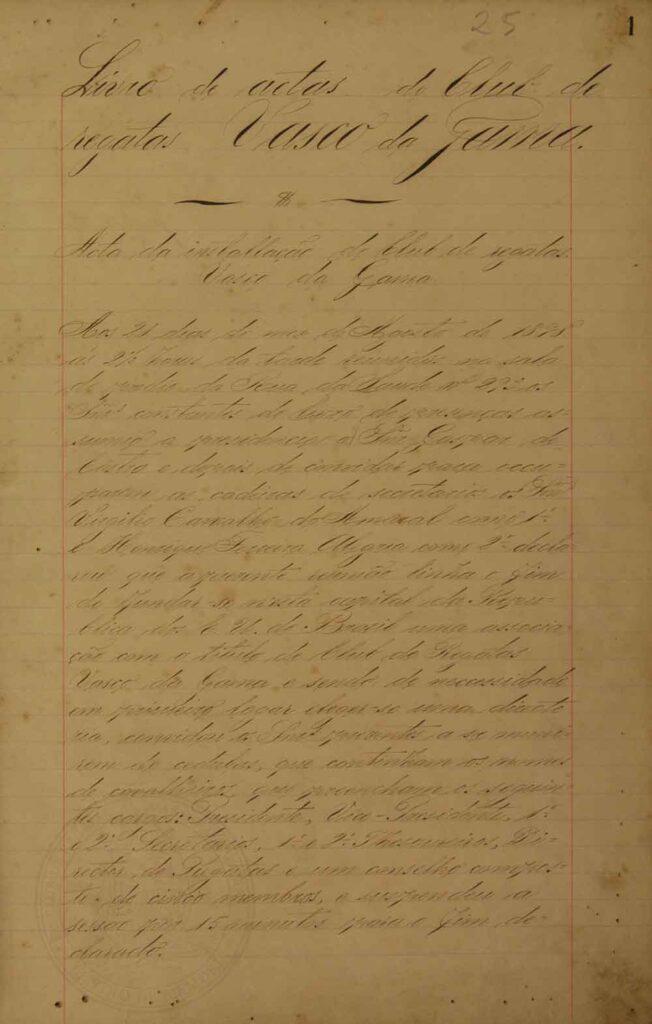 25
1
Livro de actas do Club de
regatas Vasco da Gama.
Acta da installação do Club de regatas
Vasco da Gama
Aos 21 dias do mez de Agosto de 1898
ás 2½ horas da tarde reunidos na sala
do predio da Rua da Saude nº 293 os
Snrs constantes do livro de presenças as-
sumio a presidencia o Snr Gaspar de
Castro e depois de convidar para occu-
parem as cadeiras de secretarios os Snrs
Virgilio Carvalho do Amaral como 1º
e Henrique Ferreira Alegria como 2º decla-
rou que a presente reunião tinha o fim
de fundar-se nesta capital da Repu-
blica dos E. U. do Brasil uma associa-
ção com o titulo de Club de Regatas
Vasco da Gama e sendo de necessidade
em primeiro logar eleger-se uma directo-
ria, convidou os Snrs presentes a se muni-
rem de cedulas, que contenham os nomes
de cavalheiros que preencham os seguin-
tes cargos: Presidente, Vice-Presidente, 1º
e 2º Secretarios, 1º e 2º Thesoureiros, Di-
rector de Regatas e um conselho compos-
to de cinco membros, e suspendeu a
sessão por 15 minutos para o fim de-
clarado.